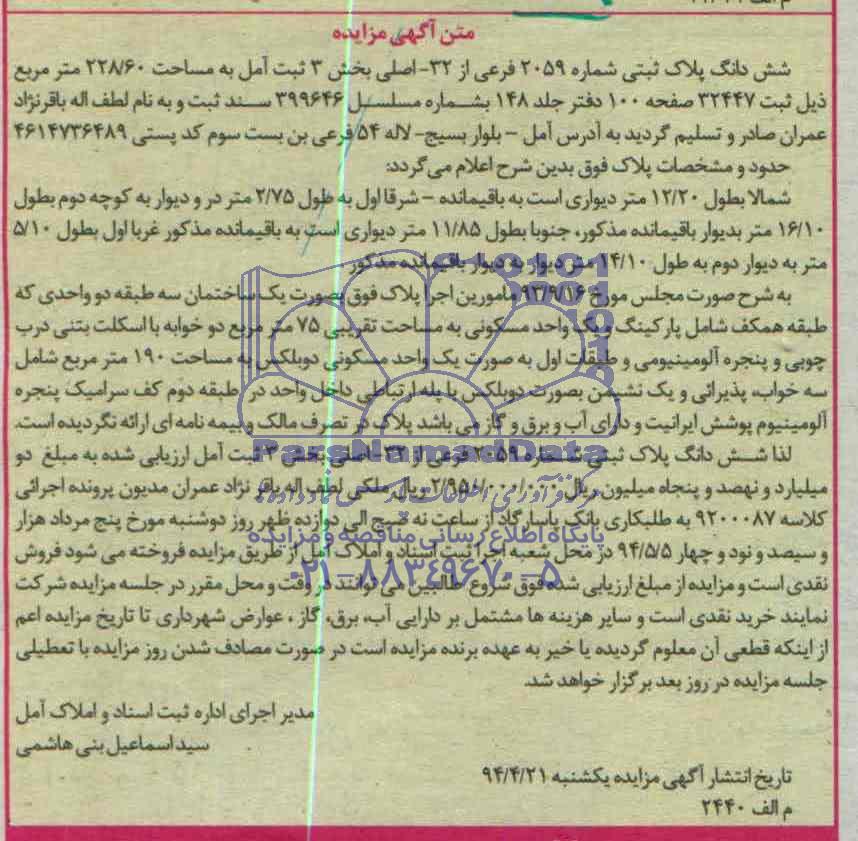 م الف
متن آگهی مزایده
شش دانگ پلاک ثبتی شماره ۲۰۵۹ فرعی از ۳۲- اصلی بخش ۳ ثبت آمل به مساحت ۲۲۸/۶۰ متر مربع
ذیل ثبت ۳۲۴۴۷ صفحه ۱۰۰ دفتر جلد ۱۴۸ بشماره مسلسل ۳۹۹۶۴۶ سند ثبت و به نام لطف اله باقرنژاد
عمران صادر و تسلیم گردید به آدرس آمل – بلوار بسیج- لاله ۵۴ فرعی بن بست سوم کد پستی ۴۶۱۴۷۳۶۴۸۹
حدود و مشخصات پلاک فوق بدین شرح اعلام می گردد:
شمالا بطول ۱۲/۲۰ متر دیواری است به باقیمانده – شرقا اول به طول ۲/۷۵ متر در و دیوار به کوچه دوم بطول
۱۶/۱۰ متر بدیوار باقیمانده مذکور، جنوبا بطول ۱۱/۸۵ متر دیواری است به باقیمانده مذکور غربا اول بطول ۵/۱۰
متر به دیوار دوم به طول ۱۴/۱۰ متر دیوار به دیوار باقیمانده مذکور
به شرح صورت مجلس مورخ ۹۳/۹/۱۶ مامورین اجرا پلاک فوق بصورت یک ساختمان سه طبقه دو واحدی که
طبقه همکف شامل پارکینگ و یک واحد مسکونی به مساحت تقریبی ۷۵ متر مربع دو خوابه با اسکلت بتنی درب
چوبی و پنجره آلومینیومی و طبقات اول به صورت یک واحد مسکونی دوبلکس به مساحت ۱۹۰ متر مربع شامل
سه خواب، پذیرائی و یک نشیمن بصورت دوبلکس با پله ارتباطی داخل واحد در طبقه دوم کف سرامیک پنجره
آلومینیوم پوشش ایرانیت و دارای آب و برق و گاز می باشد پلاک در تصرف مالک و بیمه نامه ای ارائه نگردیده است.
لذا شش دانگ پلاک ثبتی شماره ۲۰۵۹ فرعی از ۳۲- اصلی بخش ۳ ثبت آمل ارزیابی شده به مبلغ دو
میلیارد و نهصد و پنجاه میلیون ریال ۲/۹۵۰/۰۰۰/۰۰۰ ریال ملکی لطف اله باقر نژاد عمران مدیون پرونده اجرائی
کلاسه ۹۲۰۰۰۸۷ به طلبکاری بانک پاسارگاد از ساعت نه صبح الی دوازده ظهر روز دوشنبه مورخ پنج مرداد هزار
و سیصد و نود و چهار ۹۴/۵/۵ در محل شعبه اجرا ثبت اسناد و املاک آمل از طریق مزایده فروخته می شود فروش
نقدی است و مزایده از مبلغ ارزیابی شده فوق شروع طالبین می توانند در وقت و محل مقرر در جلسه مزایده شرکت
نمایند خرید نقدی است و سایر هزینه ها مشتمل بر دارایی آب، برق، گاز ، عوارض شهرداری تا تاریخ مزایده اعم
از اینکه قطعی آن معلوم گردیده یا خیر به عهده برنده مزایده است در صورت مصادف شدن روز مزایده با تعطیلی
جلسه مزایده در روز بعد برگزار خواهد شد.
مدیر اجرای اداره ثبت اسناد و املاک آمل
سید اسماعیل بنی هاشمی
تاریخ انتشار آگهی مزایده یکشنبه ۹۴/۴/۲۱
م الف ۲۴۴۰
ParsNamadData
پایگاه اطلاع رسانی مناقصه و مزایده
۰۲۱-۸۸۳۴۹۶۷۰-۵